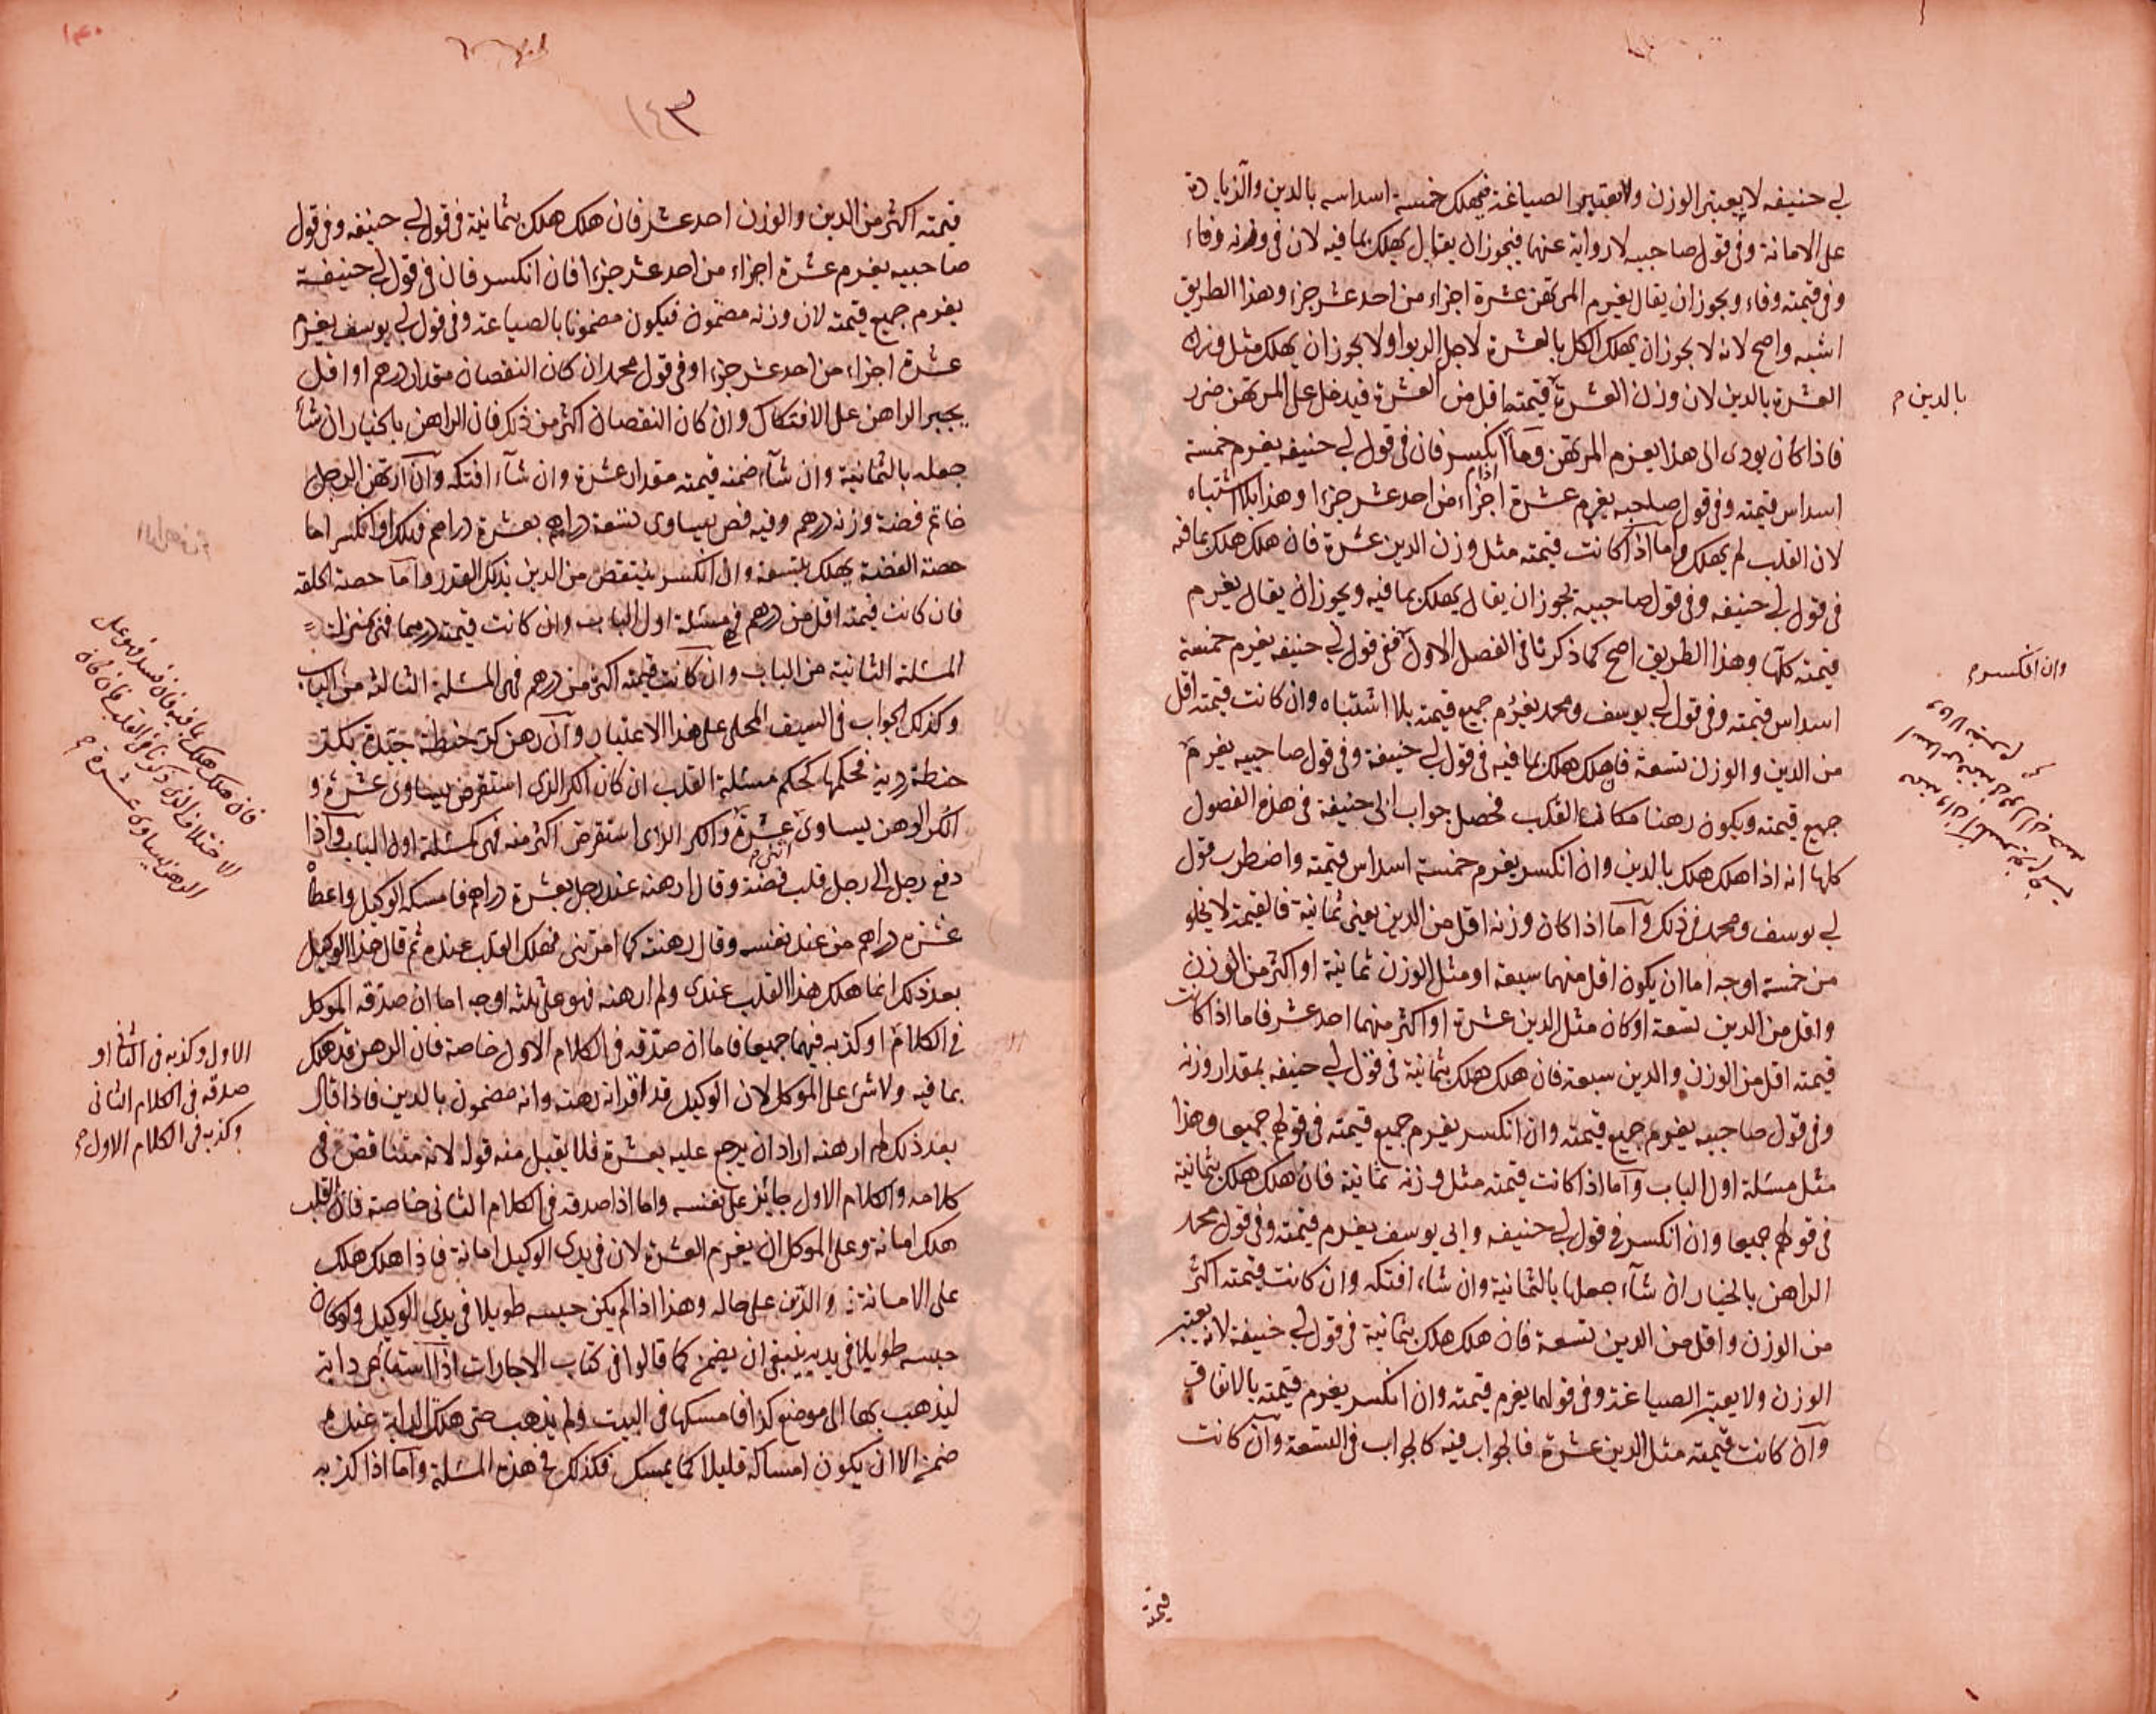 لبي حنيفه لا يعتبر الوزن ولا يعتبر الصياغة فيهلك خمسة اسداسه بالدين والزيادة
على الامانة وفي قول صاحبيه لا رواية عنهما فيجوز ان يقال يهلك بما فيه لان في وزنه وفاء
وفي قيمته وفاء ويجوز ان يقال يغرم المرتهن عشرة اجزاء من احد عشر جزء وهذا الطريق
اشبه واصح لانه لا يجوز ان يهلك الكل بالعشرة لاجل الربوا ولا يجوز ان يهلك مثل وزن
العشرة بالدين لان وزن العشرة قيمته اقل من العشرة فيدخل على المرتهن ضرر
بالدين م
فاذا كان يودى الى هذا يغرم المرتهن وما اذا انكسر فان في قول لبي حنيفه يغرم خمسة
اسداس قيمته وفي قول صاحبيه يغرم عشرة اجزاء من احد عشر جزءا وهذا بلا اشتباه
لان القلب لم يهلك واما اذا كانت قيمته مثل وزن الدين عشرة فان هلك هلك بما فيه
في قول لبي حنيفه وفي قول صاحبيه يجوز ان يقال يهلك بما فيه ويجوز ان يقال يغرم
قيمته كلها وهذا الطريق اصح كما ذكرنا في الفصل الاول ففي قول لبي حنيفه يغرم خمسة
وان انكسر م
اسداس قيمته وفي قول لبي يوسف ومحمد يغرم جميع قيمته بلا اشتباه وان كانت قيمته اقل
من الدين والوزن تسعة فان هلك هلك بما فيه في قول لبي حنيفة وفي قول صاحبيه يغرم
جميع قيمته ويكون رهنا مكان القلب فحصل جواب ابي حنيفة في هذه الفصول
كلها انه اذا هلك هلك بالدين وان انكسر يغرم خمسة اسداس قيمته واضطرب قول
لبي يوسف ومحمد في ذلك وآما اذا كان وزنه اقل من الدين يعنى ثمانية فالقيمة لا يخلو
من خمسة اوجه اما ان يكون اقل منهما سبعة او مثل الوزن ثمانية او اكثر من الوزن
واقل من الدين تسعة او كان مثل الدين عشرة او اكثر منهما احد عشر فاما اذا كانت
قيمته اقل من الوزن والدين سبعة فان هلك هلك بثمانية في قول لبي حنيفه بمقدار وزنه
وفي قول صاحبيه يغرم جميع قيمته وان انكسر يغرم جميع قيمته في قولهم جميعا وهذا
مثل مسئلة اول الباب وآما اذا كانت قيمته مثل وزنه ثمانية فان هلك هلك بثمانية
في قولهم جميعا وان انكسر في قول لبي حنيفه وابى يوسف يغرم قيمته وفي قول محمد
الراهن بالخيار ان شآء جعلها بالثمانية وان شاء افتكه وان كانت قيمته اكثر
من الوزن واقل من الدين تسعة فان هلك هلك بثمانية في قول لبي حنيفة لانه يعتبر
الوزن ولا يعتبر الصياغة وفي قولهما يغرم قيمته وان انكسر يغرم قيمته بالاتفاق
وآن كانت قيمته مثل الدين عشرة فالجواب فيه كالجواب في التسعة وآن كانت
قيمته
١٤٣
قيمته اكثر من الدين والوزن احد عشر فان هلك هلك بثمانية في قول لبي حنيفه وفي قول
صاحبيه يغرم عشرة اجزاء من احد عشر جزءا فان انكسر فان في قول لبي حنيفة
يغرم جميع قيمته لان وزنه مضمون فيكون مضمونا بالصياغة وفي قول لبي يوسف يغرم
عشرة اجزاء من احد عشر جزءا وفي قول محمد ان كان النقصان مقدار درهم او اقل
يجبر الراهن على الافتكاك وان كان النقصان اكثر من ذكر فان الراهن بالخيار ان شآ
جعله بالثمانية وان شآء ضمنه قيمته مقدار عشرة وان شآء افتكه وآن ارتهن الرجل
خاتم فضة وزنه درهم وفيه فص يساوى تسعة دراهم بعشرة دراهم فهلك او انكسر اما
حصة الفضة يهلك بتسعة وان انكسر ينتقص من الدين بذلك القدر وآما حصة الحلقه
فان كانت قيمته اقل من درهم فهي مسئلة اول الباب وان كانت قيمته درهما فهي بمنزلة
المسئلة الثانية من الباب وان كانت قيمته اكثر من درهم فهي المسئلة الثالثة من الباب
وكذلك الجواب في السيف المحلى على هذا الاعتبار وآن رهن كر حنطة جيدة بكر
حنطة ردية فحكمها كحكم مسئلة القلب ان كان الكر الذي استقرض يساوى عشرة و
الكر الرهن يساوى عشرة والكر الذى استقرض اكثر منه فهي كمسئلة اول الباب وآذا
دفع رجل الى رجل قلب فضة وقال ارهنه عند رجل بعشرة دراهم فامسكه الوكيل واعطاه
عشرة دراهم من عند نفسه وقال رهنته كما امرتنى فهلك القلب عنده ثم قال هذا الوكيل
بعد ذلك انما هلك هذا القلب عندى ولم ارهنه فهو على ثلثة اوجه اما ان صدقه الموكل
في الكلام او كذبه فيهما جميعا فاما ان صدقه في الكلام الاول خاصة فان الرهن قد هلك
الاول وكذبه في الثاني او
صدقه في الكلام الثانى
وكذبه في الكلام الاول م
بما فيه ولا شئ على الموكل لان الوكيل قد اقر انه رهنه وانه مضمون بالدين فاذا قال
بعد ذلك لم ارهنه اراد ان يرجع عليه بعشرة فلا يقبل منه قوله لانه متناقض في
كلامه والكلام الاول جائز على نفسه واما اذا صدقه في الكلام الثانى خاصة فان القلب
هلك امانة وعلى الموكل ان يغرم العشرة لان في يدى الوكيل امانة فاذا هلك هلك
على الامانة والدين على حاله وهذا اذا لم يكن حبسه طويلا في يدى الوكيل ولو كان
حبسه طويلا في يديه ينبغى ان يضمن كما قالوا في كتاب الاجارات اذا استاجر دابة
ليذهب بها الى موضع كذا فامسكها في البيت ولم يذهب حتى هلك الدابة عنده
ضمن الا ان يكون امساكه قليلا كما يمسك فكذلك في هذه المسئلة وآما اذا كذبه
فان هلك هلك بما فيه فان فسد فهو على
الاختلاف الذى ذكرنا في القلب فان كان
الرهن يساوى عشرة م